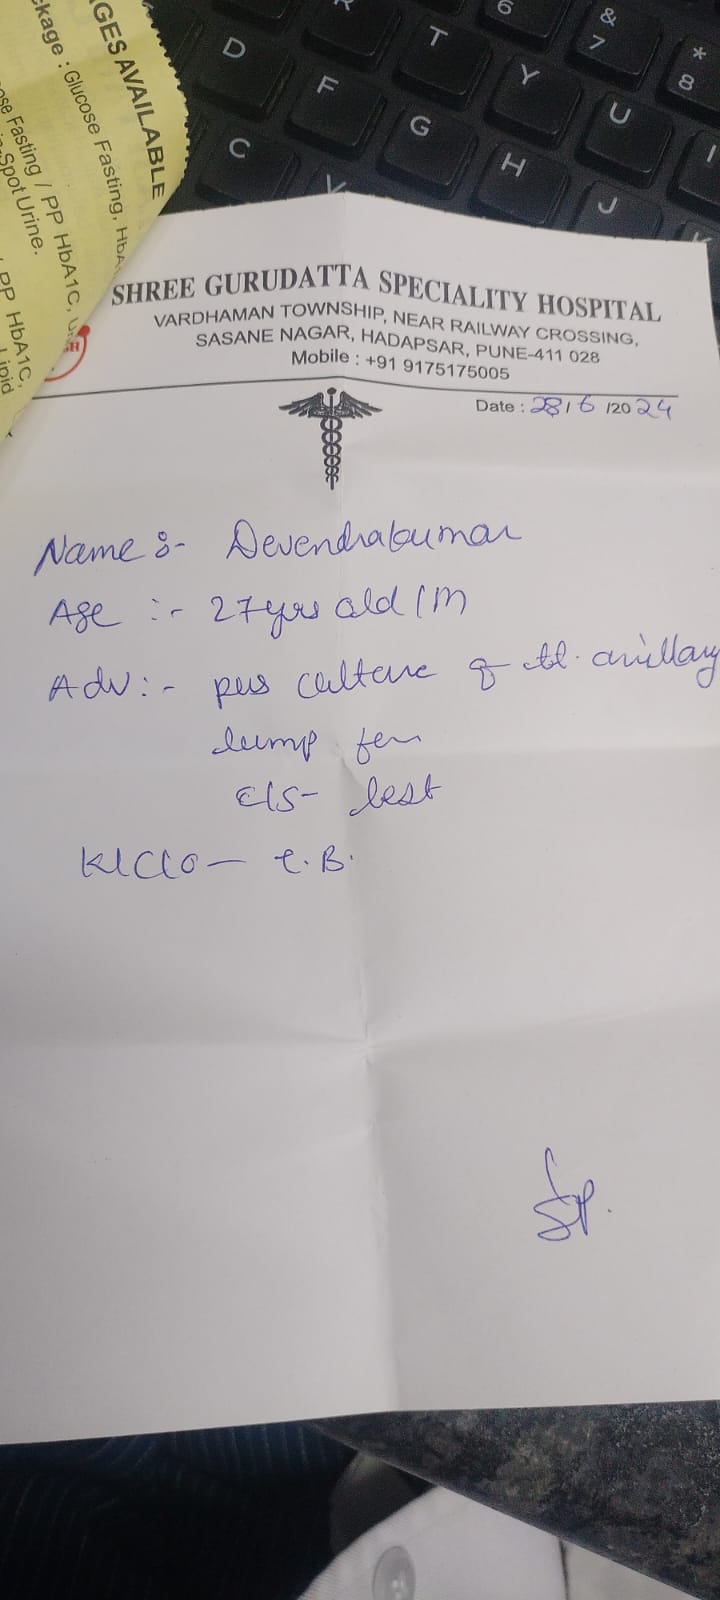 GES AVAILABLE
ckage : Glucose Fasting, HbA
ose Fasting / PP HbA1C, U
Spot Urine.
PP HbA1C,
Lipid
D
F
C
T
G
6
Y
H
& 7
U
J
* 8
SHREE GURUDATTA SPECIALITY HOSPITAL
VARDHAMAN TOWNSHIP, NEAR RAILWAY CROSSING,
SASANE NAGAR, HADAPSAR, PUNE-411 028
Mobile : +91 9175175005
Date : 28/6/2024
Name :- Devendrakumar
Age :- 27 yrs old / M
Adv :- pus culture of axillary
lump for
C/S - test
K/C/O - T.B.